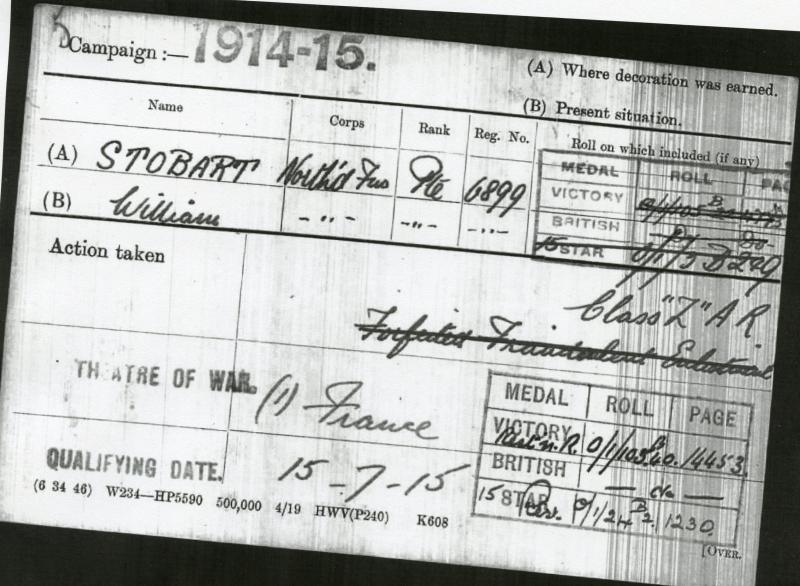 5
Campaign :— 1914-15.
(A) Where decoration was earned.
(B) Present situation.
Name Corps Rank Reg. No. Roll on which included (if any)
MEDAL ROLL PAG
(A) STOBART North'd Fus Pte 6899
VICTORY 0/1/105 B
BRITISH do do
(B) William -"- -"- -"-
15 STAR 0/1/3 B 229
Action taken
Class "Z" A R
Forfeited Fraudulent Enlistment
THEATRE OF WAR. (1) France
MEDAL ROLL PAGE
VICTORY 0/1/105 B 40. 14453.
BRITISH — do —
QUALIFYING DATE. 15-7-15
15 STAR 0/1/24 B 2. 1230
(6 34 46) W234—HP5590 500,000 4/19 HWV(P240) K608
[OVER.